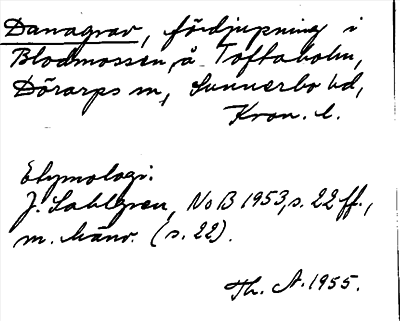 Danagrav, fördjupning i
Blodmossen, å Toftaholm,
Dörarps sn, Sunnerbo hd,
Kron. l.
Etymologi:
J. Sahlgren, NoB 1953, s. 22 ff.,
m. hänv. (s. 22).
Th. A. 1955.